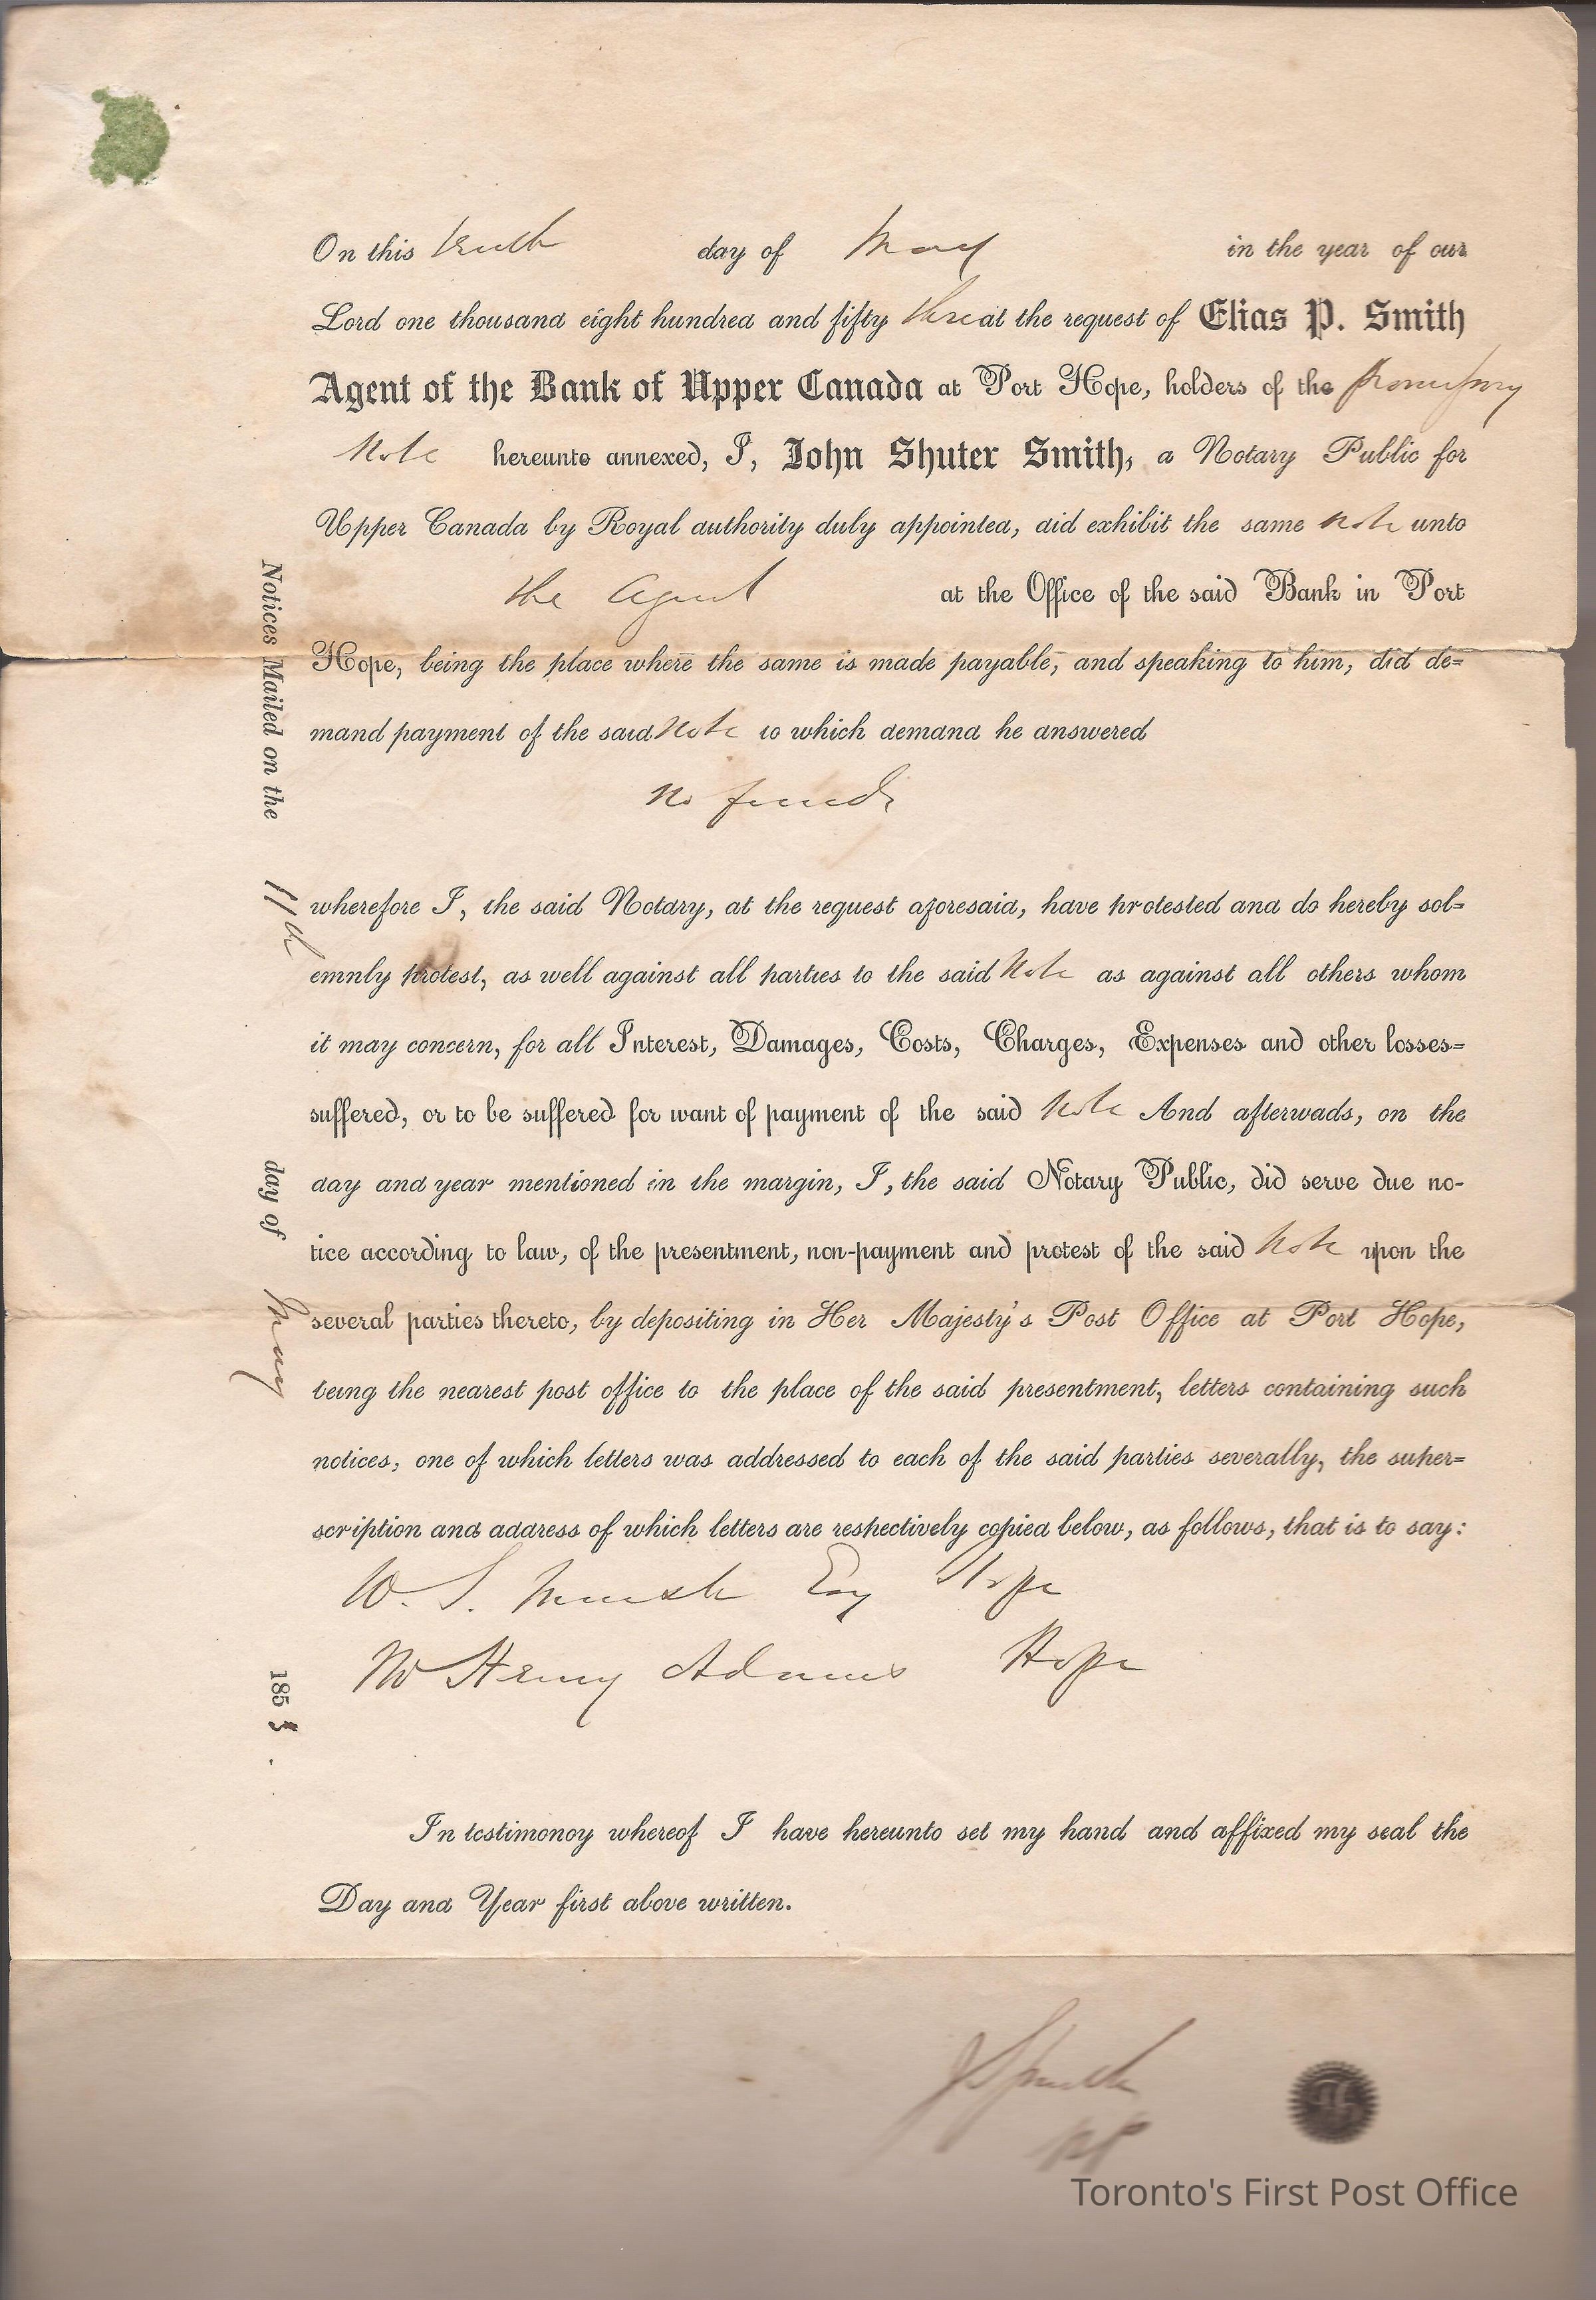 On this tenth day of May in the year of our
Lord one thousand eight hundred and fifty three at the request of Elias P. Smith
Agent of the Bank of Upper Canada at Port Hope, holders of the Promissory
Note hereunto annexed, I, John Shuter Smith, a Notary Public for
Upper Canada by Royal authority duly appointed, did exhibit the same Note unto
the Agent at the Office of the said Bank in Port
Hope, being the place where the same is made payable, and speaking to him, did de=
mand payment of the said Note to which demand he answered
No funds
wherefore I, the said Notary, at the request aforesaid, have protested and do hereby sol=
emnly protest, as well against all parties to the said Note as against all others whom
it may concern, for all Interest, Damages, Costs, Charges, Expenses and other losses=
suffered, or to be suffered for want of payment of the said Note And afterwads, on the
day and year mentioned in the margin, I, the said Notary Public, did serve due no-
tice according to law, of the presentment, non-payment and protest of the said Note upon the
several parties thereto, by depositing in Her Majesty's Post Office at Port Hope,
being the nearest post office to the place of the said presentment, letters containing such
notices, one of which letters was addressed to each of the said parties severally, the super=
scription and address of which letters are respectively copied below, as follows, that is to say:
W. S. Esq Hope
Mr Henry Adams Hope
In testimonoy whereof I have hereunto set my hand and affixed my seal the
Day and Year first above written.
JSSmith
NP
Notices Mailed on the 11th day of May 1853.
Toronto's First Post Office